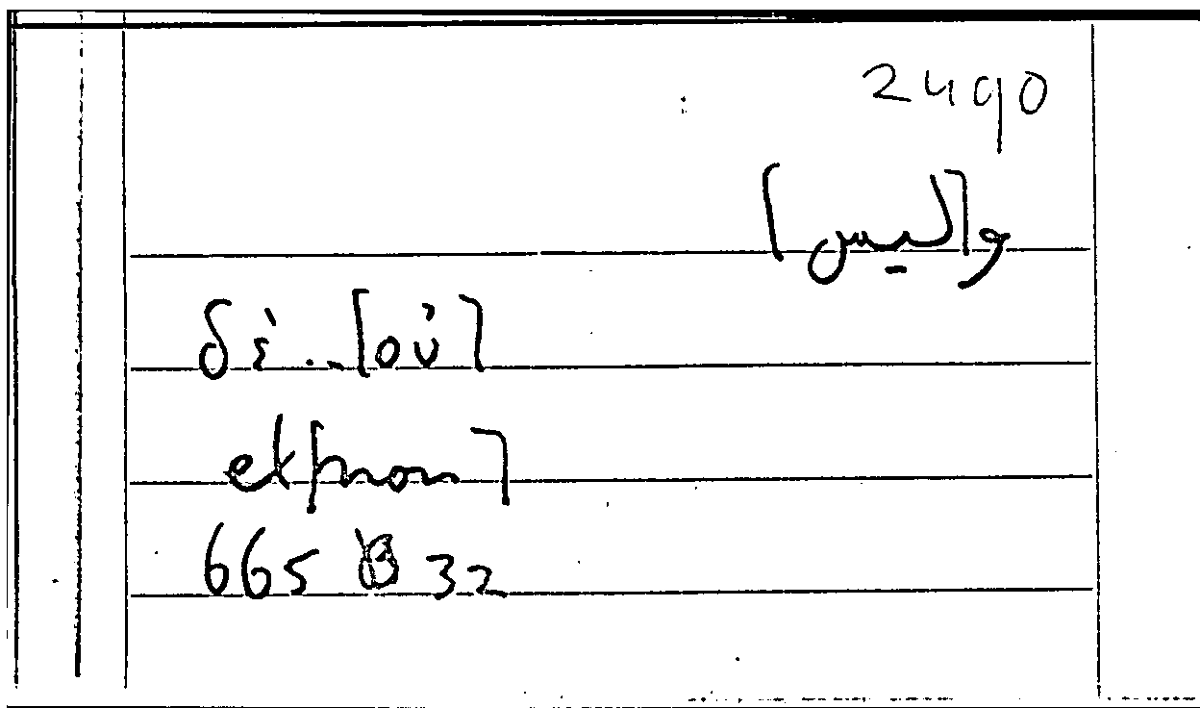 2490
و[ليس]
δὲ ..[οὐ]
et[non]
665 B 32